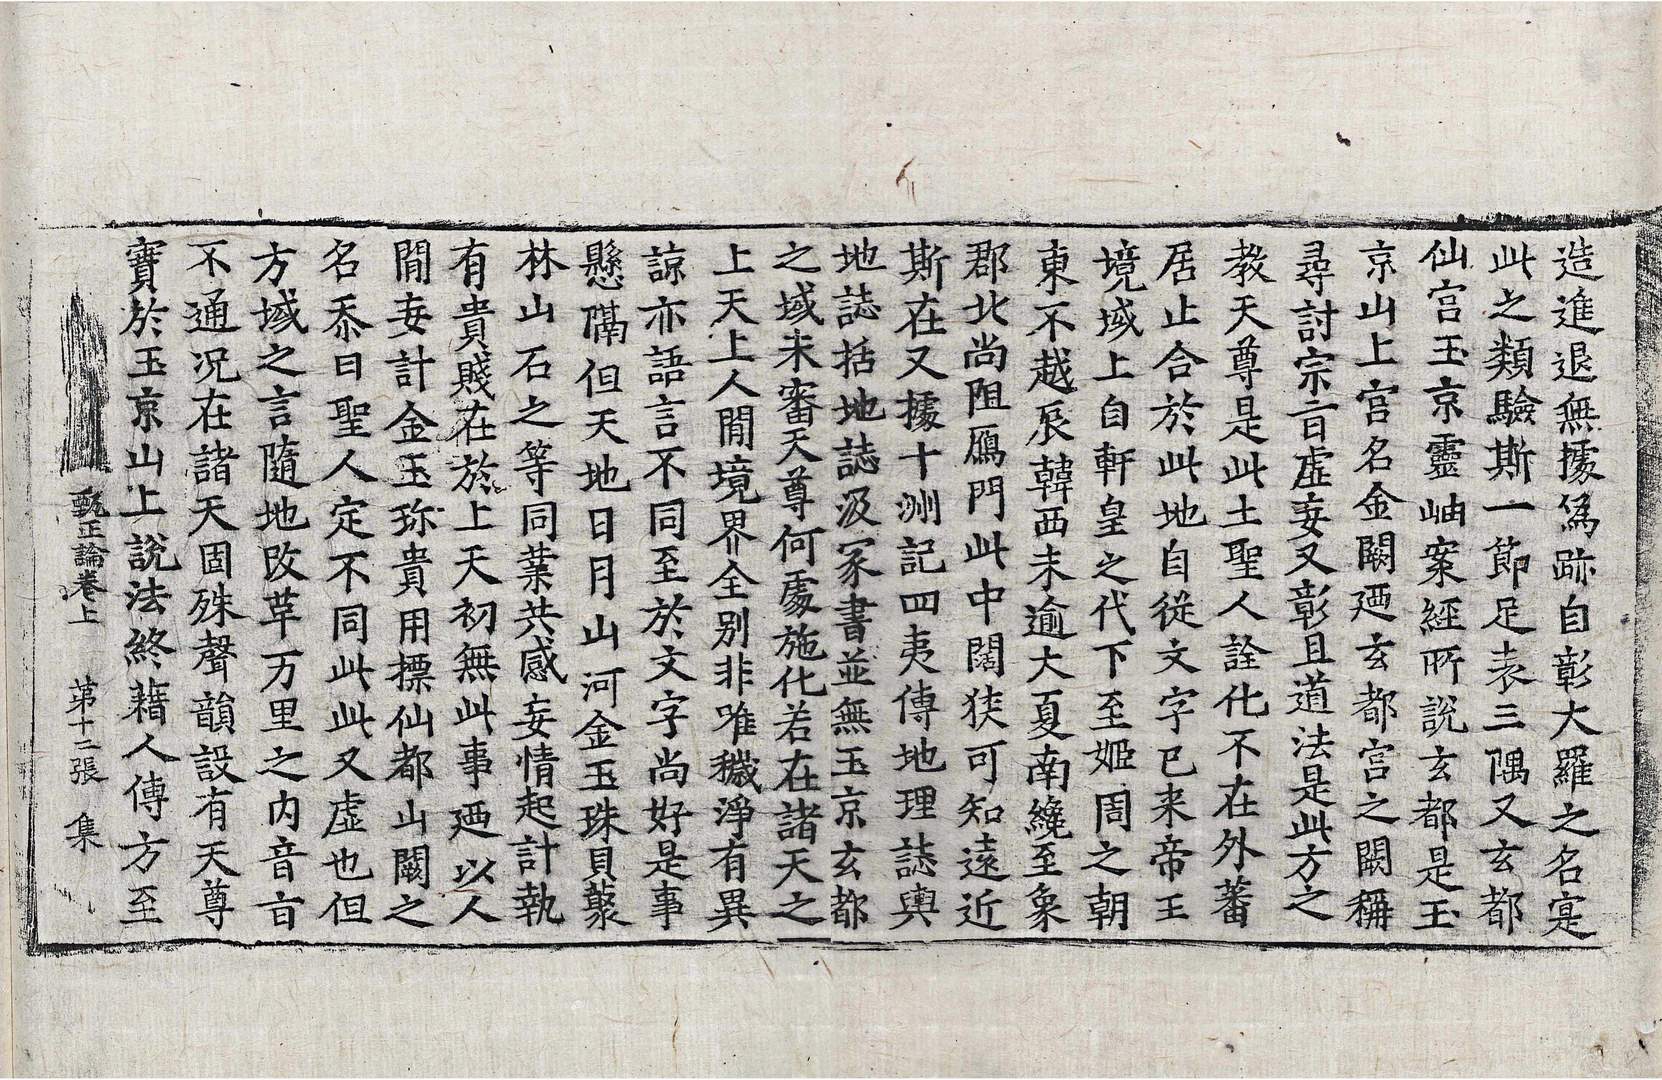 造進退無據爲跡自彰大羅之名寔
此之類驗斯一節足表三隅又玄都
仙宮玉京靈岫案經所說玄都是玉
京山上宮名金闕廼玄都宮之闕稱
尋討宗旨虛妄又彰且道法是此方之
教天尊是此土聖人詮化不在外蕃
居止合於此地自從文字已来帝王
境域上自軒皇之代下至姬周之朝
東不越辰韓西未逾大夏南纔至象
郡北尚阻鴈門此中闊狹可知遠近
斯在又據十洲記四夷傳地理誌輿
地誌括地誌汲冢書並無玉京玄都
之域未審天尊何處施化若在諸天之
上天上人閒境界全別非唯穢淨有異
諒亦語言不同至於文字尚好是事
懸隔但天地日月山河金玉珠貝藂
林山石之等同業共感妄情起計執
有貴賤在於上天初無此事廼以人
閒妄計金玉珎貴用摽仙都山闕之
名忝曰聖人定不同此此又虛也但
方域之言隨地改革万里之內音旨
不通况在諸天固殊聲韻設有天尊
實於玉京山上說法終藉人傳方至
甄正論卷上　第十二張　集